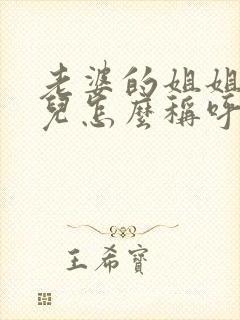 老婆的姐姐
兒怎麼稱呼
王希寶